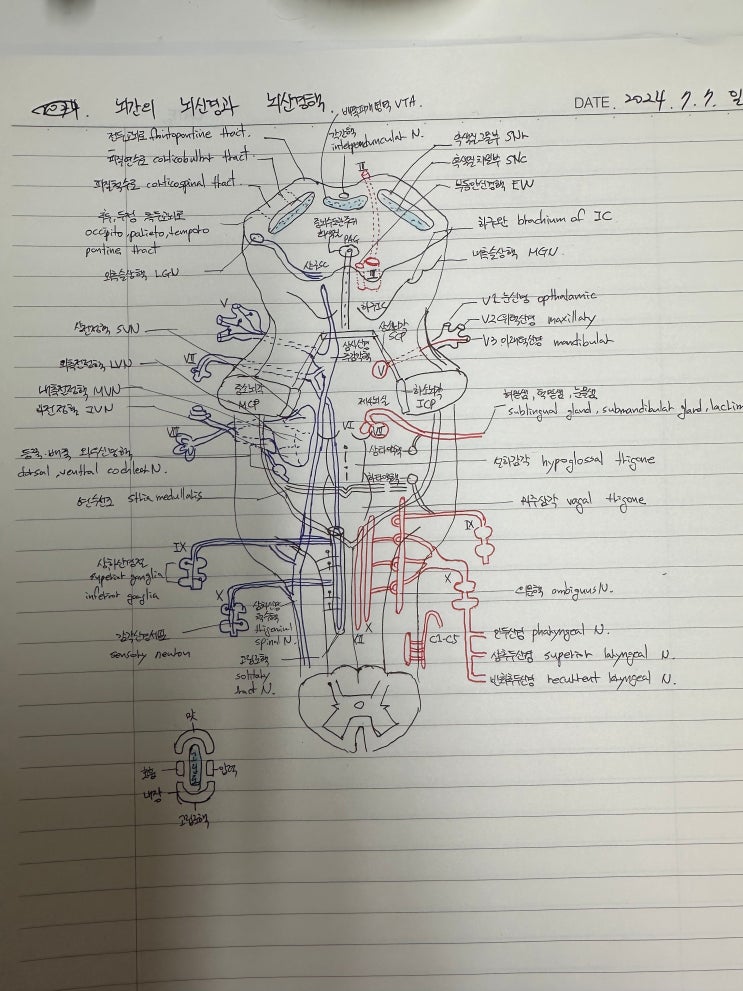 뇌간의 뇌신경과 뇌신경핵
DATE. 2024. 7. 7. 일
배쪽피개영역 VTA.
전두교뇌로 frontopontine tract.
각간핵
interpenduncular N.
흑색질그물부 SNr
피질연수로 corticobulbar tract
흑색질치밀부 SNC
III
피질척수로 corticospinal tract
부동안신경핵 EW
후두, 두정, 측두교뇌로
occipito, parieto, temporo
pontine tract
중뇌수도관주위
회색질
PAG
하구완 brachium of IC
내측슬상핵 MGN.
외측슬상핵 LGN
상구SC
III
하구IC
V
V1 눈신경 opthalamic
V2 위턱신경 maxillary
V3 아래턱신경 mandibular
상전정핵 SVN
상소뇌각
SCP
삼차신경
주감각핵
VII
외측전정핵 LVN
V
내측전정핵 MVN
중소뇌각
MCP
하소뇌각
ICP
제4뇌실
하전정핵 IVN
혀밑샘, 턱밑샘, 눈물샘
sublingual gland, submandibular gland, lacrim
VIII
VI
VII
등쪽·배쪽 와우신경핵
dorsal, ventral cochlear N.
상타액핵
설하삼각 hypoglossal trigone
하타액핵
연수선조 stria medullaris
미주삼각 vagal trigone
IX
IX
상하신경절
superior ganglia
inferior ganglia
X
X
의문핵 ambiguus N.
삼차신경
척수핵
trigeminal
spinal N.
감각신경세포
sensory neuron
XII
X
C1-C5
인두신경 pharyngeal N.
고립로핵
solitary
tract N.
상후두신경 superior laryngeal N.
반회후두신경 recurrent laryngeal N.
맛
호흡
압력
내장
고립로핵